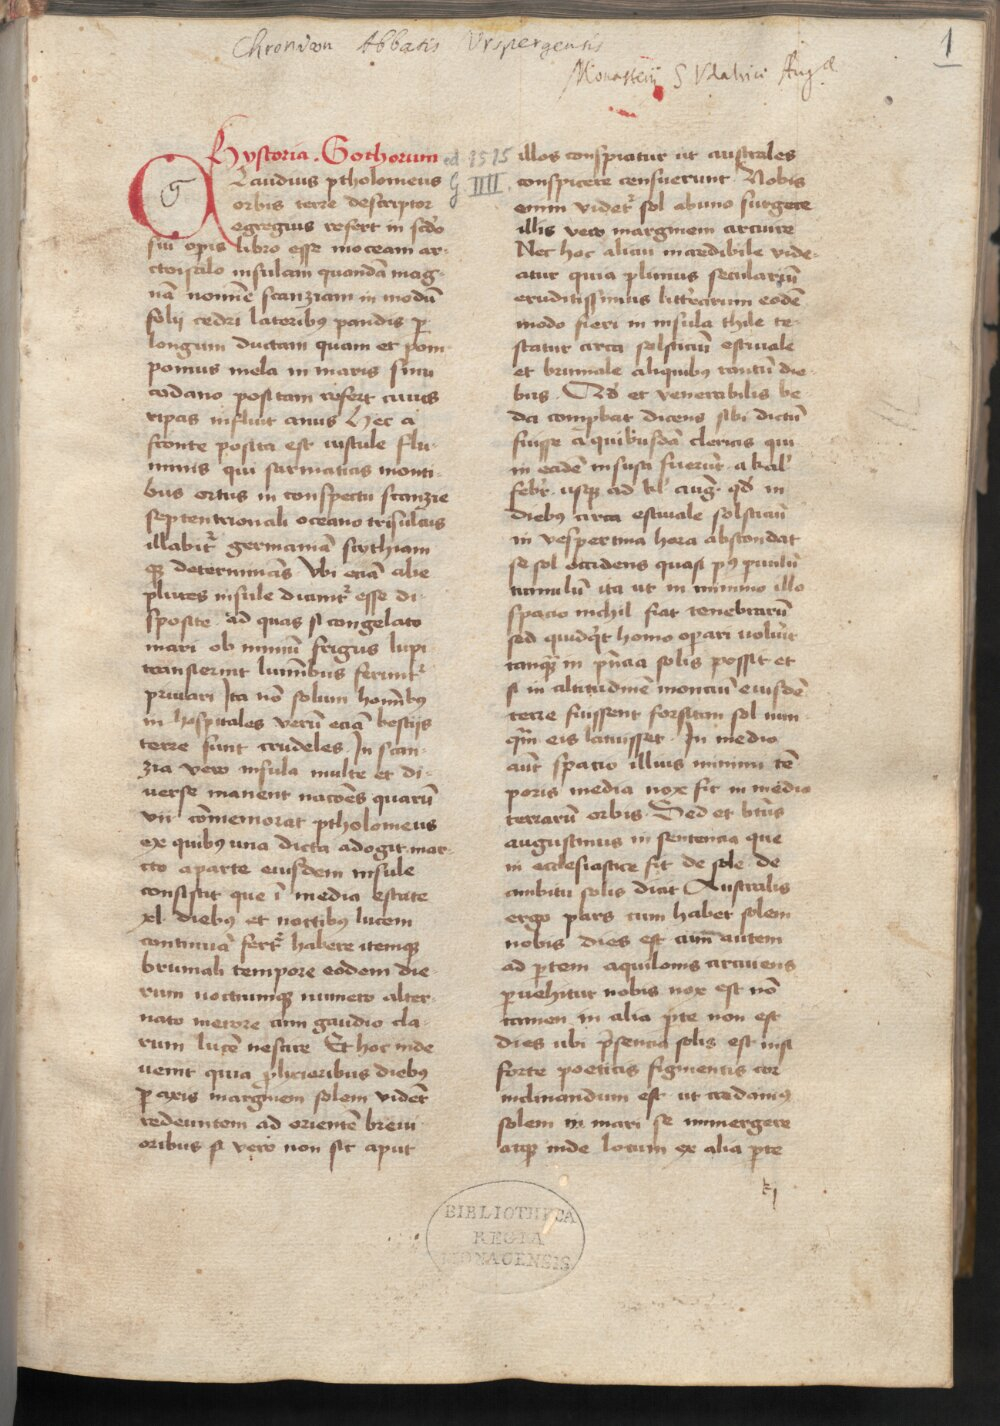 Chronicon Abbatis Urspergensis
Monasterij S Vdalrici Augæ
1
Hystoria . Gothorum
ed. 1515
G IIII.
Claudius ptholomeus
orbis terre descriptor
egregius refert in scd̄o
sui opis libro esse in oceam ar-
ctoi salo insulam quandā mag-
nā nomīe scanziam in modū
folij cedri lateribꝫ pandis p̲
longum ductam quam et pom
ponius mela in maris sinu
codano positam refert cuius
ripas influit anus Hec a
fronte posita est uistule flu-
minis qui sarmaticis monti-
bus ortus in conspectu scanzie
septentrionali oceano trisulcus
illabit᷑ germaniā scythiam
qꝫ determinās Vbi eciā alie
plures insule dicunt᷑ esse di-
sposite ad quas si congelato
mari ob nimiū frigus lupi
transierint luminibus ferunt᷑
priuari Ita nō solum homībꝫ
in hospitales verū eciā bestijs
terre sunt crudeles In scan-
zia vero insula multe et di-
uerse manent nacōes quarū
vii cōmemorat ptholomeus
ex quibꝫ una dicta adogit mar
cto aparte eiusdem insule
consistit que ī media estate
xl diebꝫ et noctibꝫ lucem
continuā fert᷑ habere itemqꝫ
brumali tempore eodem die-
rum noctiumqꝫ numero alter-
nato merore cum gaudio cla-
rum lucē nescire Et hoc inde
uenit quia prolixioribus diebꝫ
p̲ axis marginem solem videt᷑
redeuntem ad orientē breui
oribus si vero non sic aput
illos conspicatur ut australes
conspicere censuerunt Nobis
enim videt᷑ sol ab uno surgere
illis vero marginem circuire
Nec hoc alicui incredibile vide-
atur quia plinius seculariū
eruditissimus litterarum eodē
modo fieri in insula thile te-
statur circa solsticiū estiuale
et brumale aliquibꝫ tantū die-
bus . Sꝫ et venerabilis be
da comp̲bat dicens sibi dictū
fuisse a quibusdā clericis qui
in eadē insula fuerūt a kal'
febr̄. usqꝫ ad kl' aug. qd̄ in
diebꝫ circa estiuale solsticiū
in vespertina hora abscondat
se sol occidens quasi pꝰ paruulū
tumulū ita ut in minimo illo
spacio nichil fiat tenebrarū
sed quidqd̄ homo op̲ari voluit
tanqꝫ in p̄ncia solis possit et
si in altitudinē montiū eiusdē
terre fuissent forsitam sol nun-
qm̄ eis latuisset . In medio
aūt spacio illius minimi tē
poris media nox fit in media
terrarū orbis . Sed et btūs
augustinus in sentencia que
in ecclesiastice sit de sole de
ambitu solis dicit Australis
ergo pars cum habet solem
nobis dies est cum autem
ad p̲tem aquilonis circuiens
p̲uehitur nobis nox est nō
tamen in alia p̲te non est
dies ubi p̄sencia solis est nisi
forte poeticis figmentis cor
inclinandum est ut credamꝰ
solem in mari se immergere
atqꝫ inde lotum ex alia p̲te
BIBLIOTHECA
REGIA
MONACENSIS